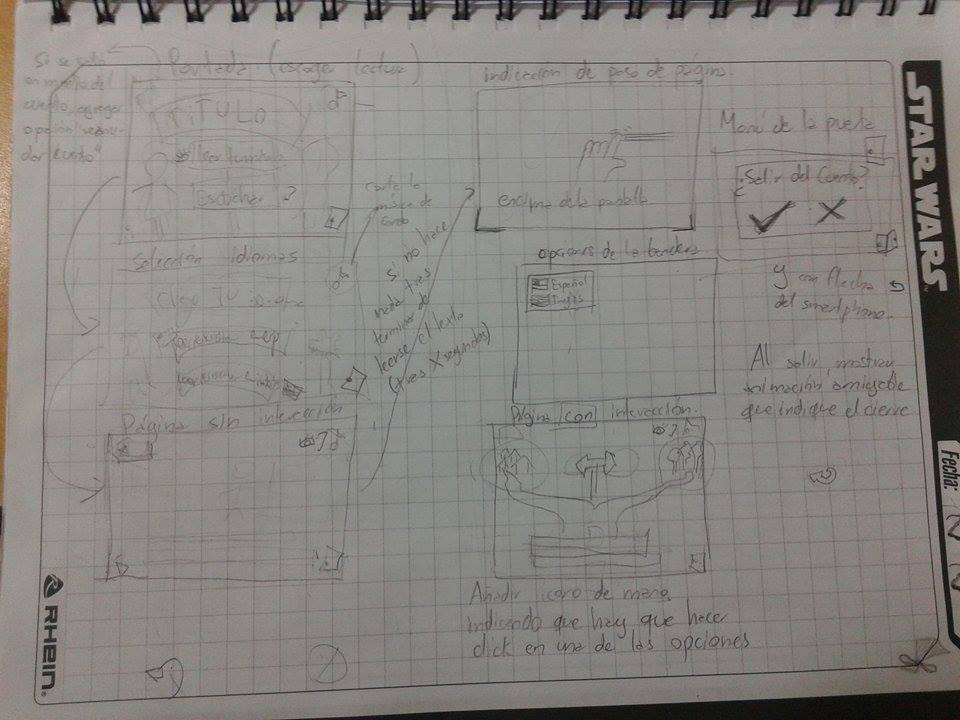 Si se salió
en medio del
cuento, agregar
opción "reanu-
dar cuento"
Portada (escoger lectura)
TíTULO
Leer
Escuchar
corta la
música de
fondo
Selección idiomas
Elige tu
Página sin interección
si no hace
nada tras
terminar de
leerse el texto
(tras X segundos)
indicación de paso de página.
encima de la pantalla
opciones de la bandera
Español
Inglés
Página con interección.
Añadir icono de mano
indicando que hay que hacer
click en una de las opciones
Menú de la puerta
¿Salir del Cuento?
Y con flecha
del smartphone.
Al salir, mostrar
animación amigable
que indique el cierre
STAR WARS
Fecha:
RHEIN